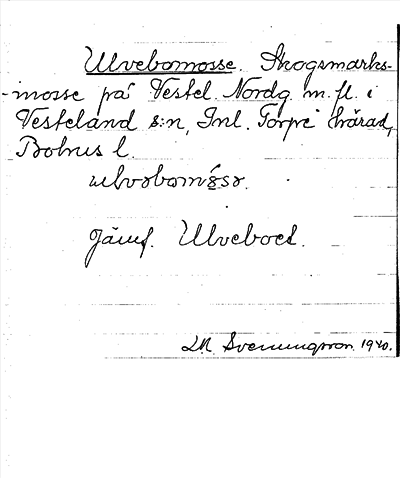 Ulvebomosse. Skogsmarks-
-mosse på Vestel. Nordg. m. fl. i
Vesteland s:n, Inl. Torpe härad,
Bohus l.
ulvobomåso.
Jämf. Ulveboet.
LM. Svenungsson. 1940.